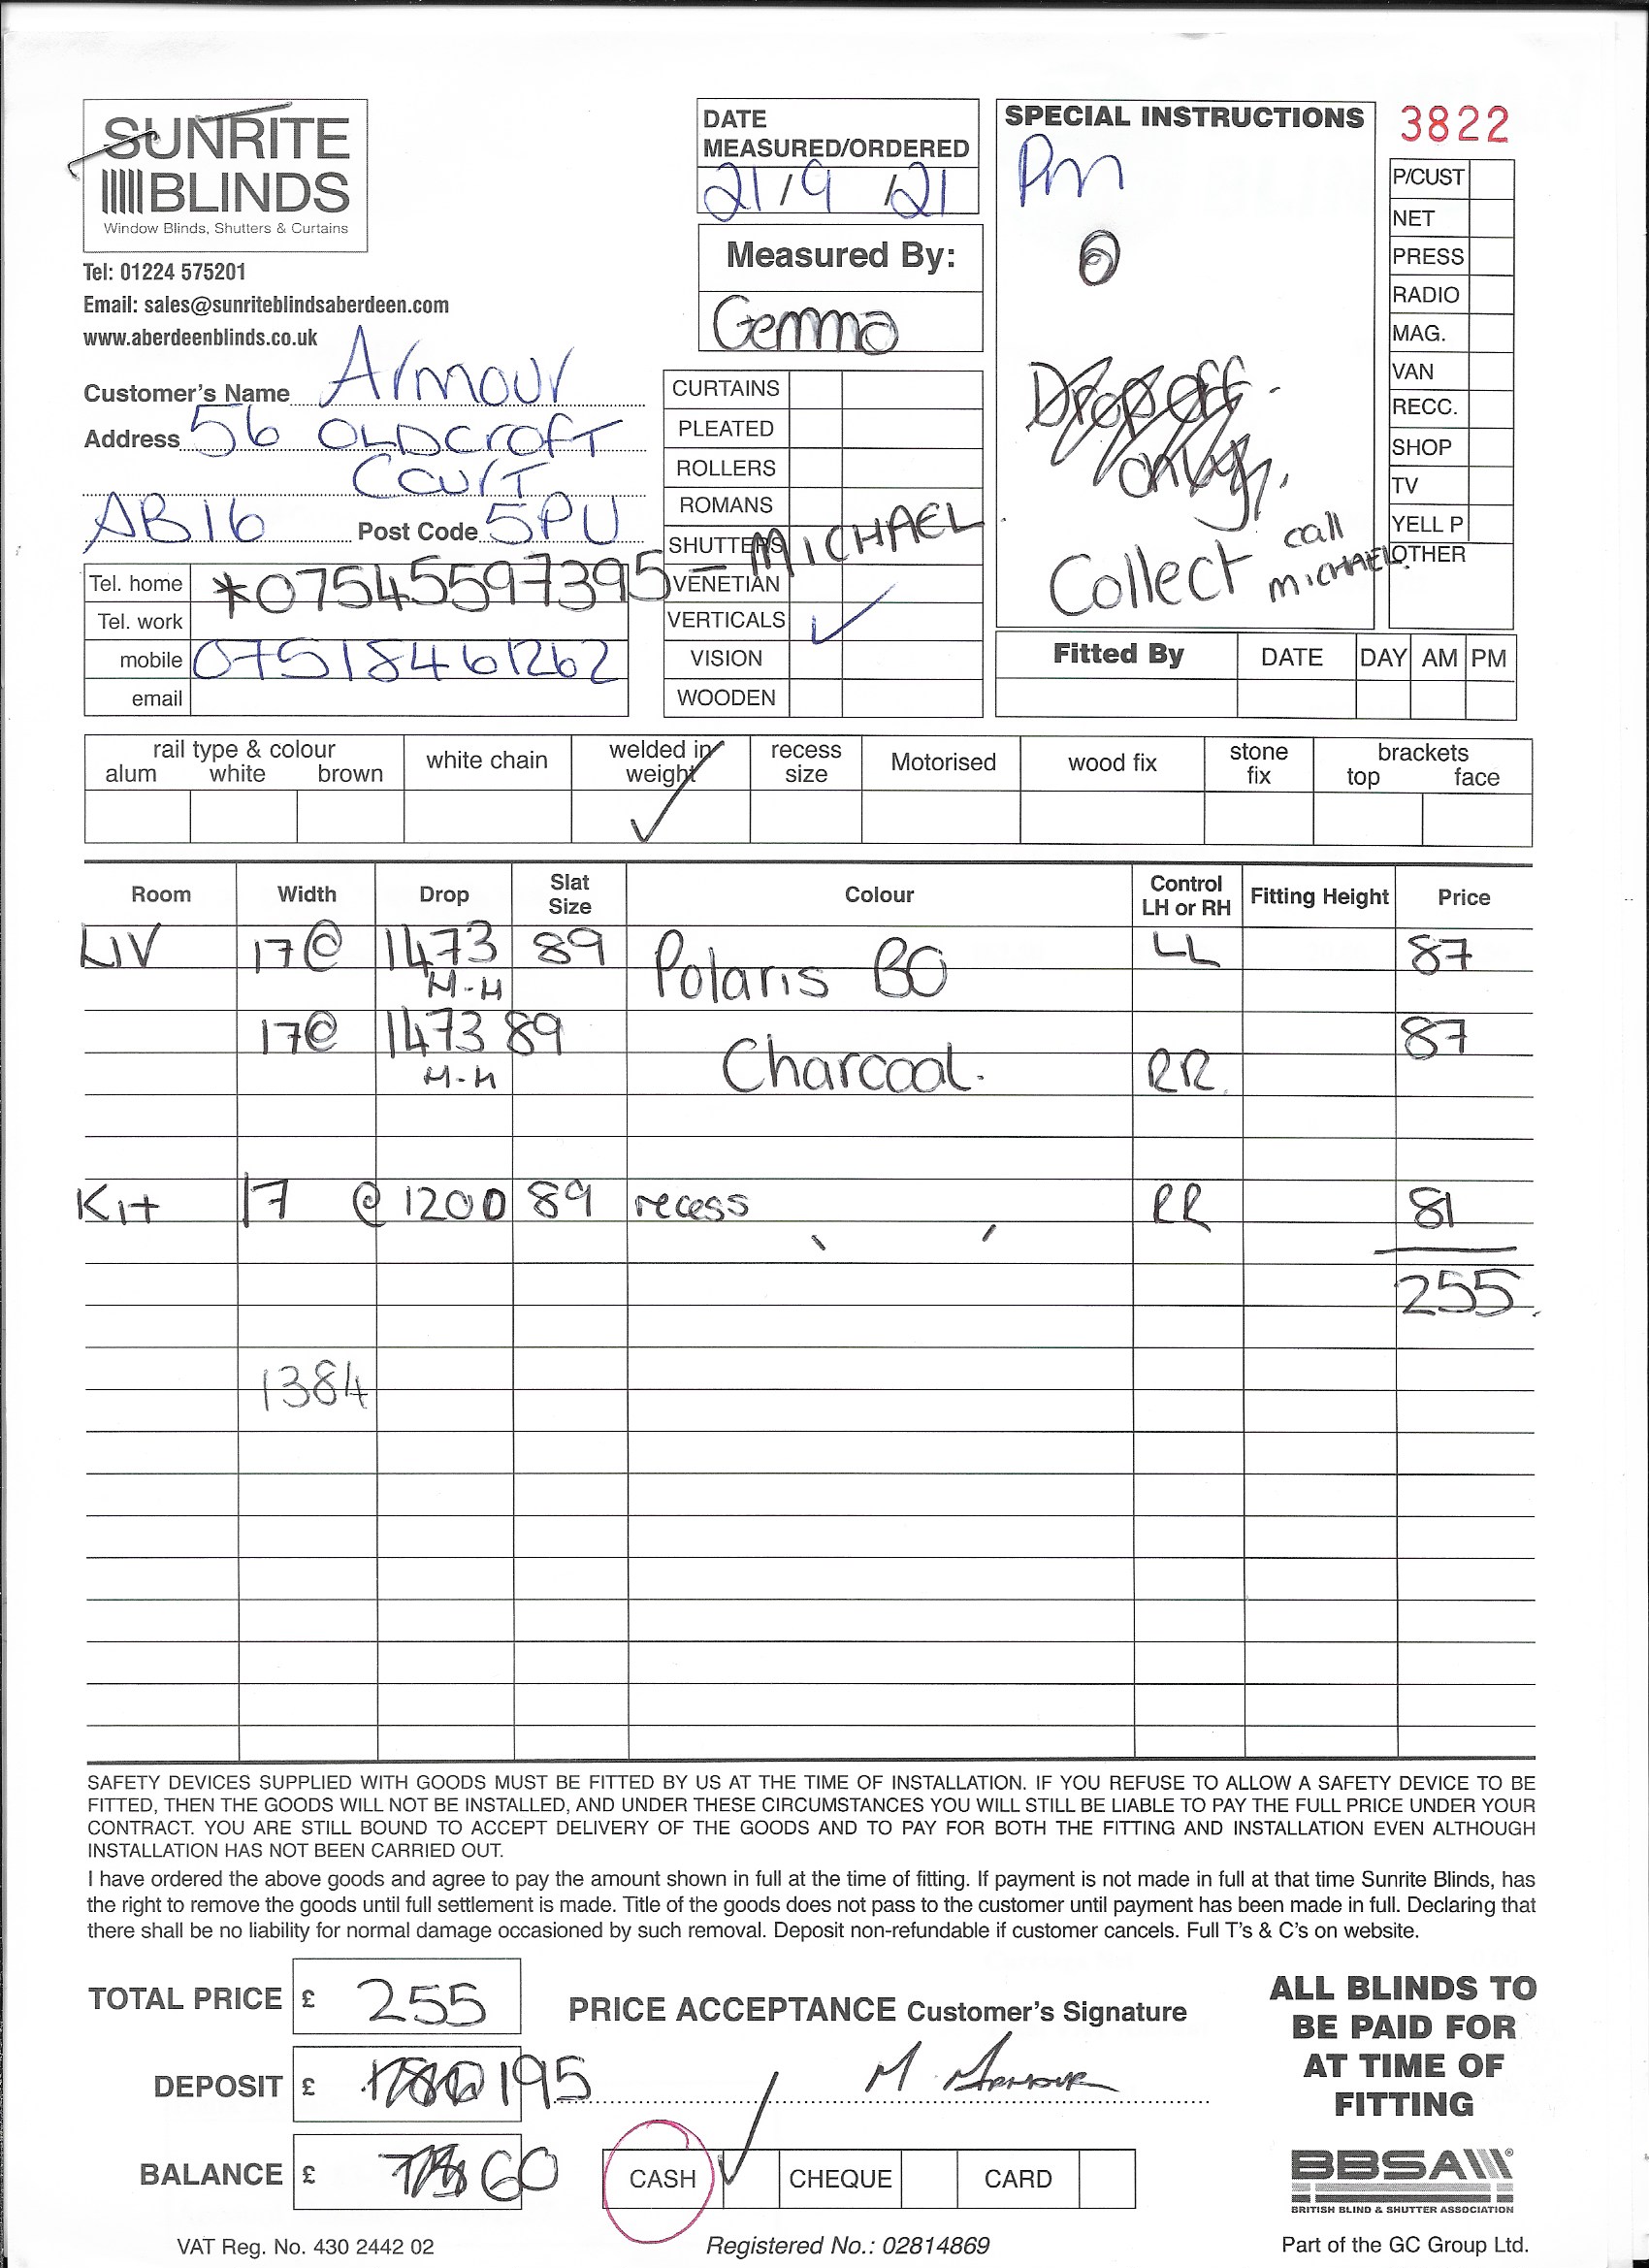 SUNRITE
BLINDS
Window Blinds, Shutters & Curtains
Tel: 01224 575201
Email: sales@sunriteblindsaberdeen.com
www.aberdeenblinds.co.uk
Customer's Name Armour
Address 56 OLDCROFT
COURT
AB16 Post Code 5PU
Tel. home *07545597395 - MICHAEL
Tel. work
mobile 07518461262
email
DATE
MEASURED/ORDERED
21/9/21
Measured By:
Gemma
CURTAINS
PLEATED
ROLLERS
ROMANS
SHUTTERS
VENETIAN
VERTICALS ✓
VISION
WOODEN
SPECIAL INSTRUCTIONS
Pm
Drop off
only.
Collect call
MICHAEL.
3822
P/CUST
NET
PRESS
RADIO
MAG.
VAN
RECC.
SHOP
TV
YELL P
OTHER
Fitted By DATE DAY AM PM
rail type & colour
alum white brown
white chain
welded in
weight ✓
recess
size
Motorised
wood fix
stone
fix
brackets
top face
Room Width Drop Slat Size Colour Control LH or RH Fitting Height Price
LIV 17@ 1473 89 Polaris BO LL 87
M-M
17@ 1473 89 Charcoal. RR 87
M-M
Kit 17 @ 1200 89 recess RR 81
255
1384
SAFETY DEVICES SUPPLIED WITH GOODS MUST BE FITTED BY US AT THE TIME OF INSTALLATION. IF YOU REFUSE TO ALLOW A SAFETY DEVICE TO BE
FITTED, THEN THE GOODS WILL NOT BE INSTALLED, AND UNDER THESE CIRCUMSTANCES YOU WILL STILL BE LIABLE TO PAY THE FULL PRICE UNDER YOUR
CONTRACT. YOU ARE STILL BOUND TO ACCEPT DELIVERY OF THE GOODS AND TO PAY FOR BOTH THE FITTING AND INSTALLATION EVEN ALTHOUGH
INSTALLATION HAS NOT BEEN CARRIED OUT.
I have ordered the above goods and agree to pay the amount shown in full at the time of fitting. If payment is not made in full at that time Sunrite Blinds, has
the right to remove the goods until full settlement is made. Title of the goods does not pass to the customer until payment has been made in full. Declaring that
there shall be no liability for normal damage occasioned by such removal. Deposit non-refundable if customer cancels. Full T's & C's on website.
TOTAL PRICE £ 255
DEPOSIT £ 195
BALANCE £ 60
PRICE ACCEPTANCE Customer's Signature
M Armour
CASH ✓ CHEQUE CARD
ALL BLINDS TO
BE PAID FOR
AT TIME OF
FITTING
BBSA
BRITISH BLIND & SHUTTER ASSOCIATION
VAT Reg. No. 430 2442 02
Registered No.: 02814869
Part of the GC Group Ltd.